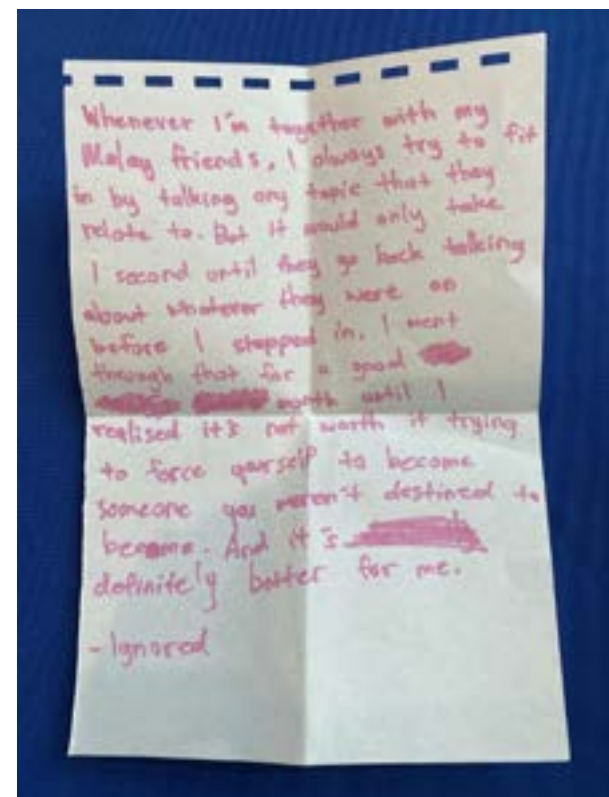 Whenever I'm together with my
Malay friends, I always try to fit
in by talking any topic that they
relate to. But it would only take
1 second until they go back talking
about whatever they were on
before I stepped in. I went
through that for a good
month until I
realised it's not worth it trying
to force yourself to become
someone you weren't destined to
become. And it's
definitely better for me.
- Ignored